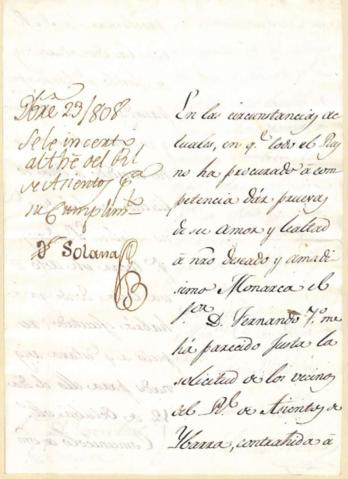 Dbre 23/808
Se le incertó
al The del Rl
de Asientos pa
su Cumplimto
Solana
En las circunstancias ac
tuales, en qe todo el Rey
no ha procurado à com
petencia dár pruevas
de su amor y lealtad
à nro deseado y amadi
simo Monarca el
Sor D. Fernando 7.º me
há parecido justa la
solicitud de los vecinos
del Rl. de Asientos de
Ybarra, contrahida à